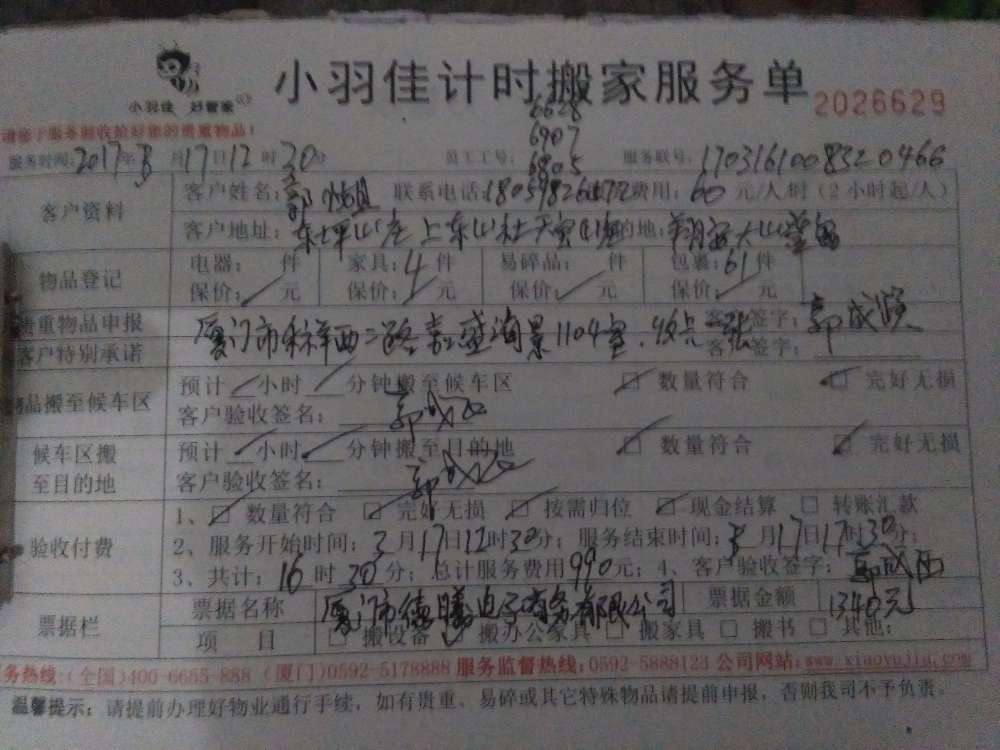 小羽佳计时搬家服务单
小羽佳 好管家
2026629
6628
请您于服务前收拾好您的贵重物品!
6907
服务时间: 2017年3月17日12时30分 员工工号: 6805 服务联号: 1703161008320466
客户资料 客户姓名: 郭 联系电话: 费用: 60 元/人/时 (2小时起/人)
客户地址: 东坪山 上东山社 目的地: 翔安大
物品登记 电器: 件 家具: 4件 易碎品: 件 包裹: 61件
保价: 元 保价: 元 保价: 元 保价: 元
贵重物品申报 客户签字: 郭成
厦门市 西二路 1104室
客户特别承诺 客户签字:
物品搬至候车区 预计 小时 分钟搬至候车区 数量符合 完好无损
客户验收签名: 郭成
候车区搬至目的地 预计 小时 分钟搬至目的地 数量符合 完好无损
客户验收签名: 郭成
验收付费 1、 数量符合 完好无损 按需归位 现金结算 转账汇款
2、服务开始时间: 3月17日12时30分; 服务结束时间: 3月17日17时30分;
3、共计: 16时30分; 总计服务费用990元; 4、客户验收签字: 郭成
票据栏 票据名称 厦门市德 电子商务有限公司 票据金额 1340元
项 目 搬设备 搬办公家具 搬家具 搬书 其他:
务热线:(全国)400-6655-888 (厦门)0592-5178888 服务监督热线:0592-5888123 公司网站:www.xiaoyujia.com
温馨提示: 请提前办理好物业通行手续, 如有贵重、易碎或其它特殊物品请提前申报, 否则我司不予负责。